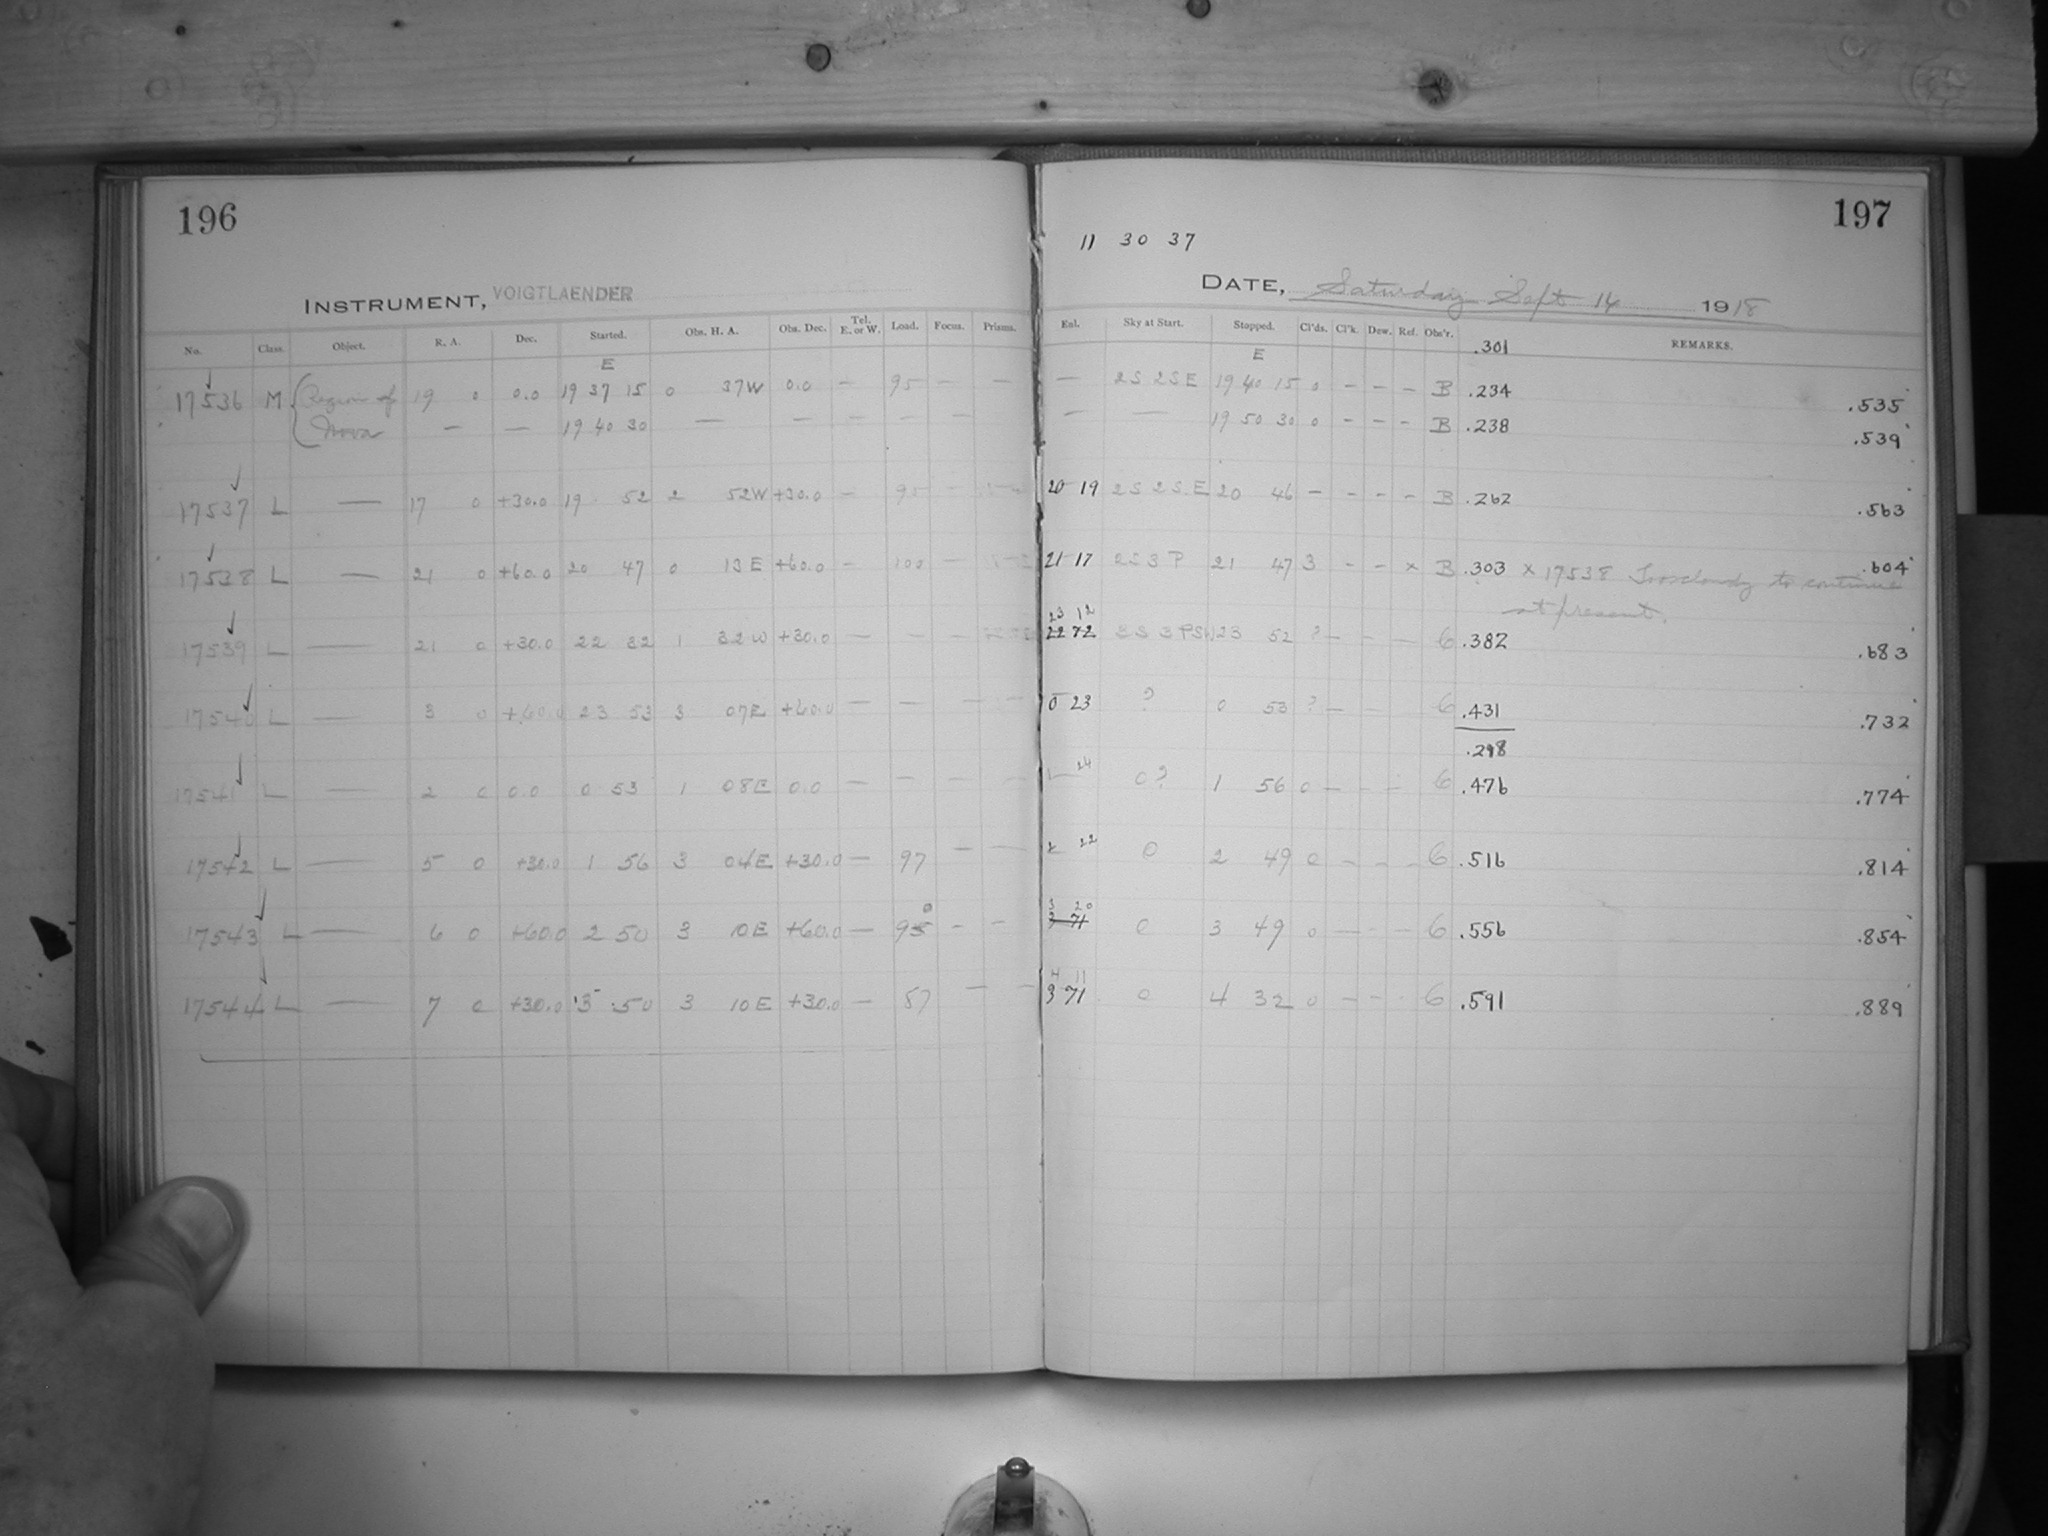 196
INSTRUMENT, VOIGTLAENDER
No. Class. Object. R. A. Dec. Started. Obs. H. A. Obs. Dec. Tel. E. or W. Load. Focus. Prisms.
E
17536 M Region of 19 0 0.0 19 37 15 0 37W 0.0 — 95 — —
Nova — — 19 40 30 — — — — — —
17537 L — 17 0 +30.0 19 52 2 52W +30.0 — 95 —
17538 L — 21 0 +60.0 20 47 0 13E +60.0 — 100 —
17539 L — 21 0 +30.0 22 32 1 32W +30.0 — — —
17540 L — 3 0 +60.0 23 53 3 07E +60.0 — — — —
17541 L — 2 0 0.0 0 53 1 08E 0.0 — — — —
17542 L — 5 0 +30.0 1 56 3 04E +30.0 — 97 — —
17543 L — 6 0 +60.0 2 50 3 10E +60.0 — 95 0 - —
17544 L — 7 0 +30.0 3 50 3 10E +30.0 — 87 — —
197
11 30 37
DATE, Saturday Sept 14 1918
Enl. Sky at Start. Stopped. Cl'ds. Cl'k. Dew. Ref. Obs'r. REMARKS.
E .301
— 2S 2SE 19 40 15 0 - - - B .234 .535
— — 19 50 30 0 - - - B .238 .539
20 19 2S 2S.E 20 46 - - - - B .262 .563
21 17 2S 3 P 21 47 3 - - x B .303 x 17538 Too cloudy to continue .604
at present.
23 12
22 72 23 52 ? - - — 6 .382 .683
0 23 ? 0 53 ? — - 6 .431 .732
.298
1 24 0? 1 56 0 — - - 6 .476 .774
2 22 0 2 49 0 - - - 6 .516 .814
3 20
3 71 0 3 49 0 — - - 6 .556 .854
4 11
3 71 0 4 32 0 - - - 6 .591 .889